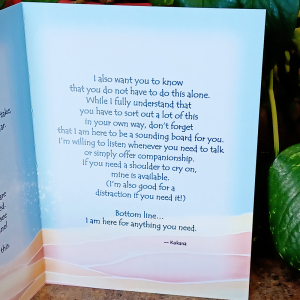 I also want you to know
that you do not have to do this alone.
While I fully understand that
you have to sort out a lot of this
in your own way, don't forget
that I am here to be a sounding board for you.
I'm willing to listen whenever you need to talk
or simply offer companionship.
If you need a shoulder to cry on,
mine is available.
(I'm also good for a
distraction if you need it!)
Bottom line...
I am here for anything you need.
— Kukana